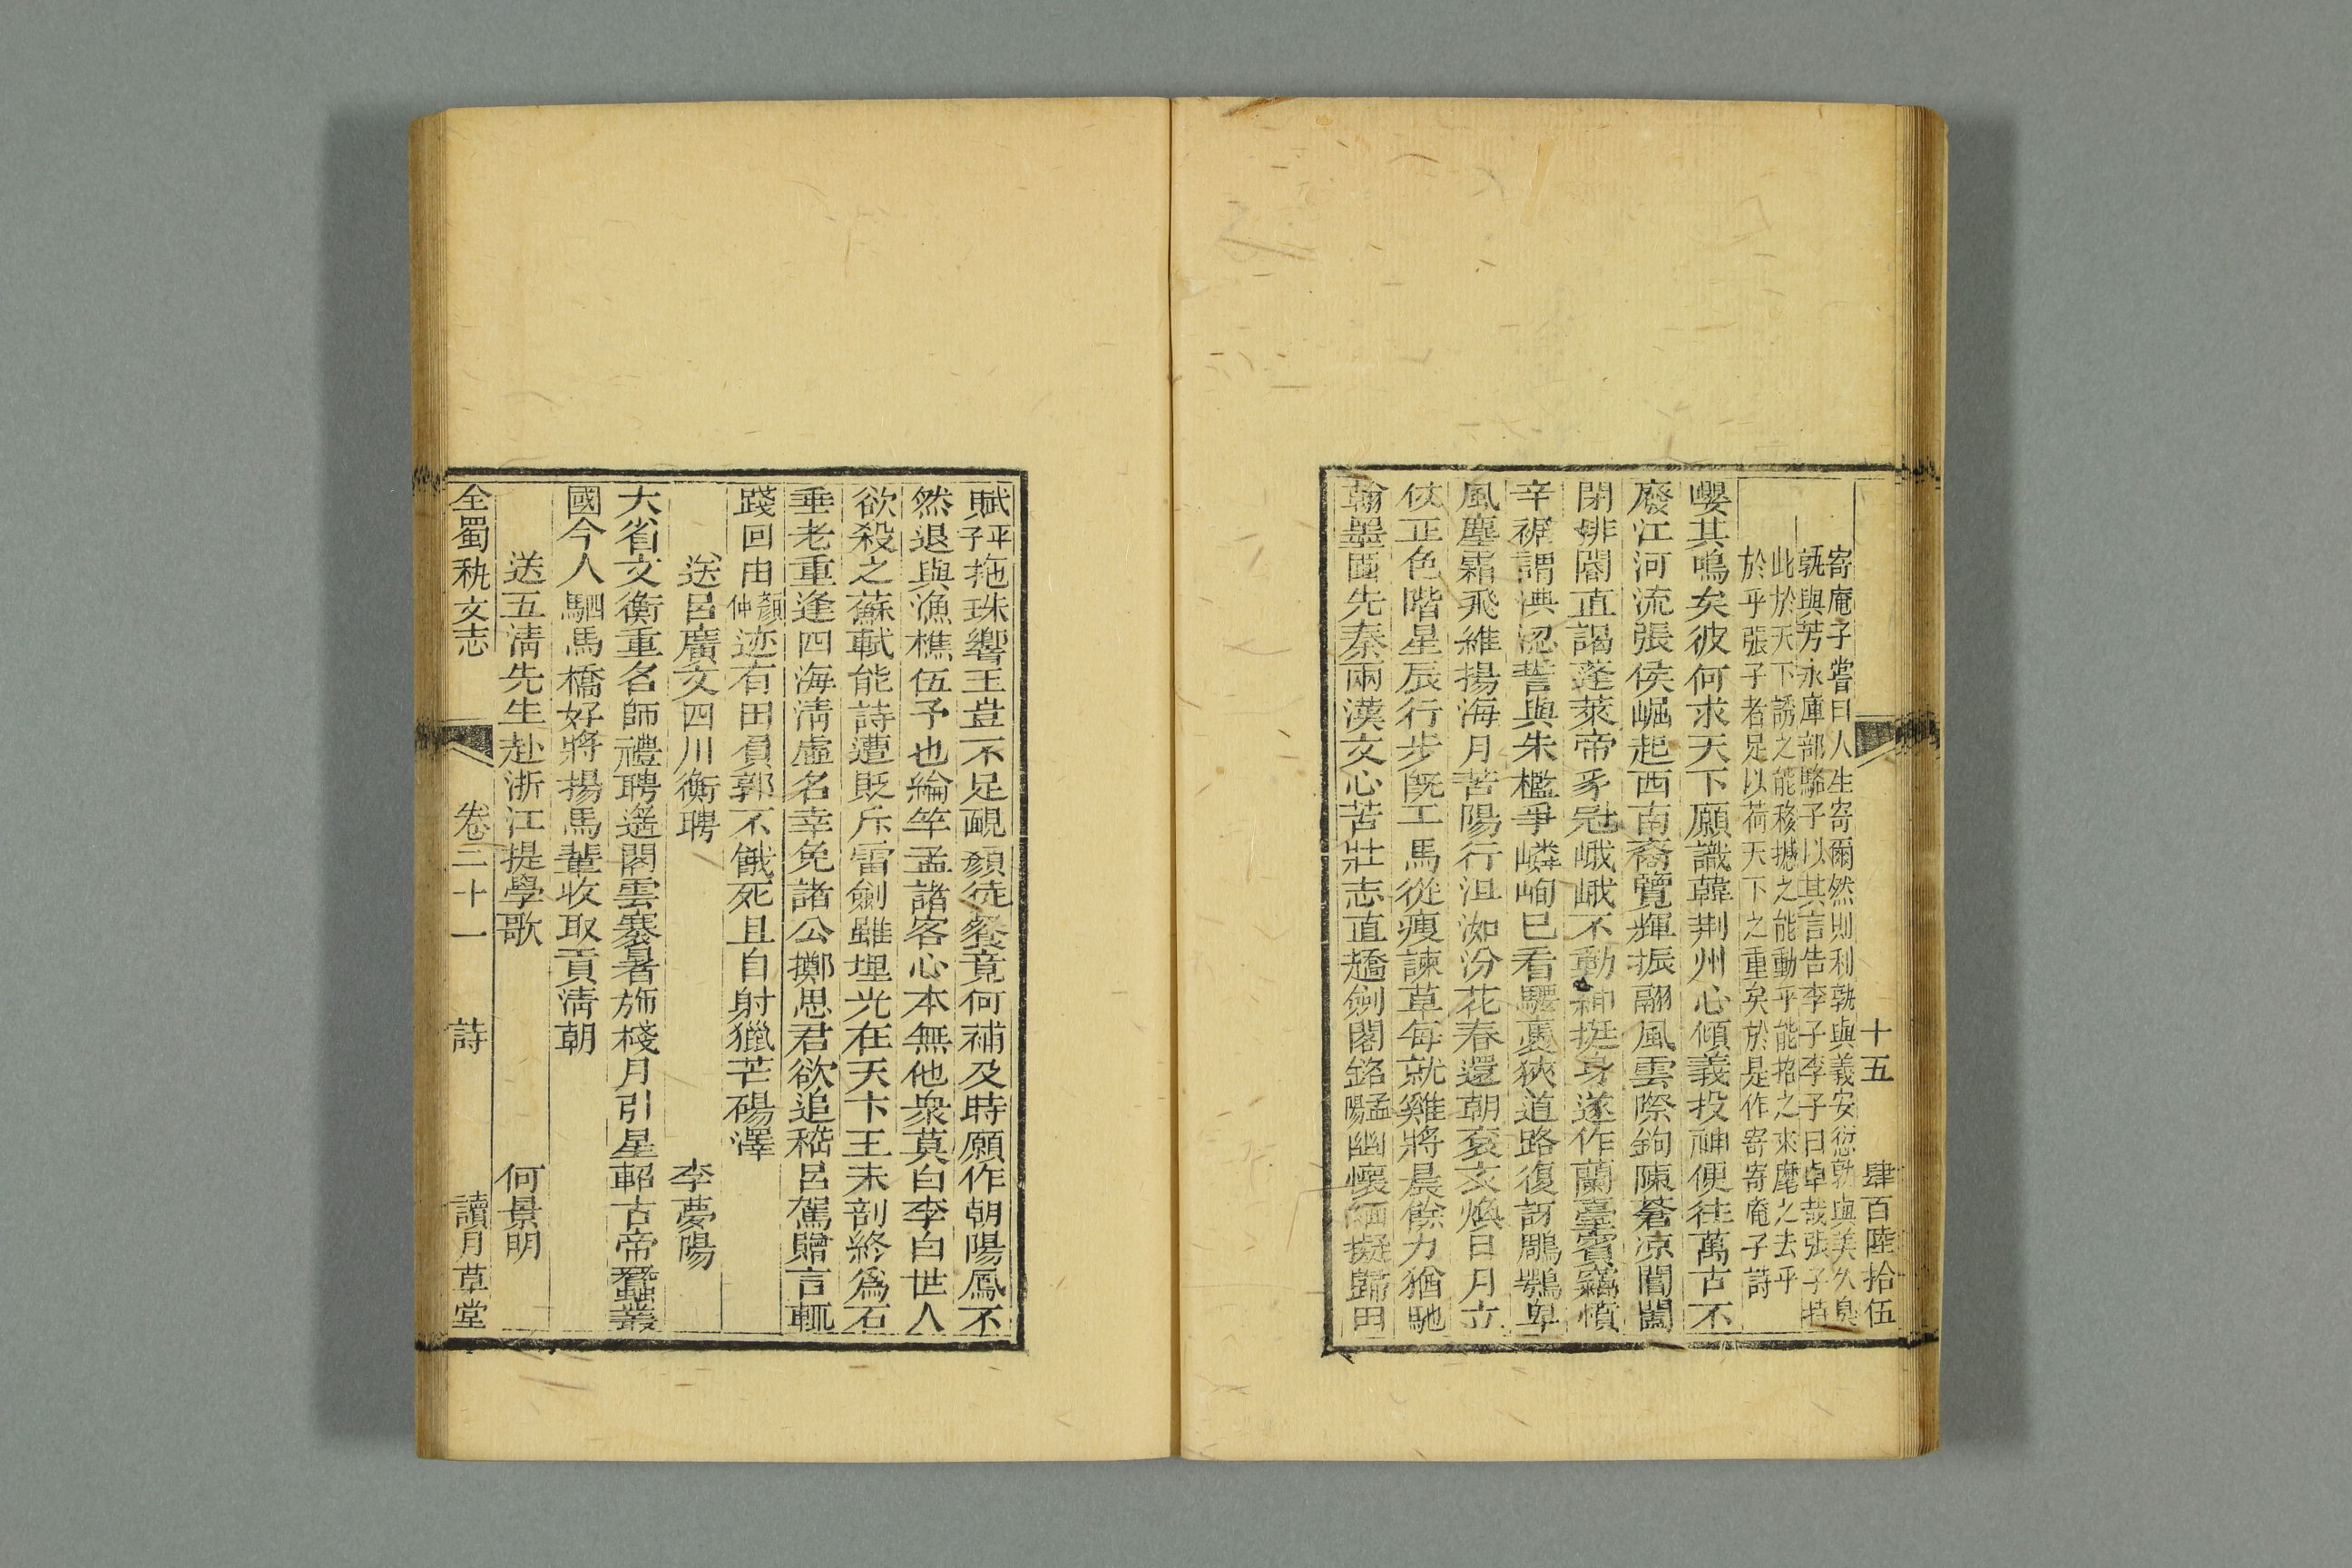 十五 肆百陸拾伍
寄庵子嘗曰人生寄爾然則利孰與義安愆孰與美久臭
孰與芳永庫部駱子以其言告李子李子曰卓哉張子持
此於天下誘之能移撼之能動乎能招之來麾之去乎
於乎張子者足以荷天下之重矣於是作寄寄庵子詩
嚶其鳴矣彼何求天下願識韓荆州心傾義投神便往萬古不
廢江河流張侯崛起西南裔覽輝振翮風雲際鉤陳蒼凉閶闔
閉排閽直謁蓬萊帝豸冠峨峨不動紳挺身遂作蘭臺賓竊憤
辛裾謂洟認誓與朱檻爭嶙峋已看驄裹狹道路復訝鵰鶚卑
風塵霜飛維揚海月苦陽行沮洳汾花春還朝袞文煥日月立
仗正色階星辰行步旣工馬從瘦諫草每就雞將晨餘力猶馳
翰墨園先秦兩漢文心苦壯志直趫劍閣銘孟陽幽懷緬擬歸田
賦平子拖珠響玉豈不足靦顏徒餐竟何補及時願作朝陽鳳不
然退與漁樵伍予也綸竿孟諸客心本無他衆莫白李白世人
欲殺之蘇軾能詩遭貶斥雷劍雖埋光在天卞王未剖終爲石
垂老重逢四海淸虛名幸免諸公擲思君欲追嵇呂駕贈言輒
踐回由顏仲迹有田負郭不餓死且自射獵芒碭澤
送呂廣文四川衡聘 李夢陽
大省文衡重名師禮聘遙閣雲褰暑旆棧月引星軺古帝蠶叢
國今人駟馬橋好將揚馬輩收取貢淸朝
送五淸先生赴浙江提學歌 何景明
全蜀秇文志 卷二十一 詩 讀月草堂